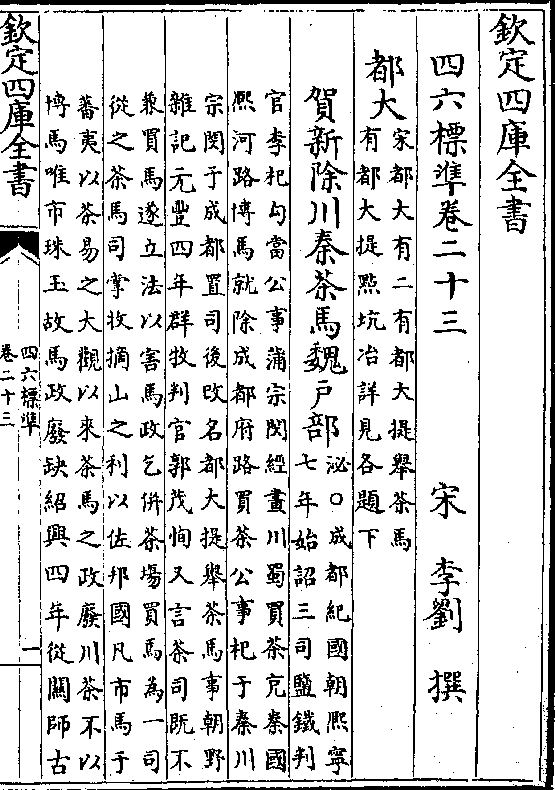 欽定四庫全書
四六標準卷二十三
宋 李劉 撰
都大宋都大有二有都大提舉茶馬
有都大提點坑冶詳見各題下
賀新除川秦茶馬魏戸部泌○成都紀國朝熙寧
七年始詔三司鹽鐵判
官李杞勾當公事蒲宗閔經畫川蜀買茶充秦國
熙河路博馬就除成都府路買茶公事杞于秦川
宗閔于成都置司後改名都大提舉茶馬事朝野
雜記元豐四年群牧判官郭茂恂又言茶司既不
兼買馬遂立法以害馬政乞併茶塲買馬為一司
從之茶馬司掌牧摘山之利以佐邦國凡市馬于
蕃夷以茶易之大觀以來茶馬之政廢川茶不以
博馬唯市珠玉故馬政廢缺紹興四年從關師古
欽定四庫全書
四六標準
卷二十三
一